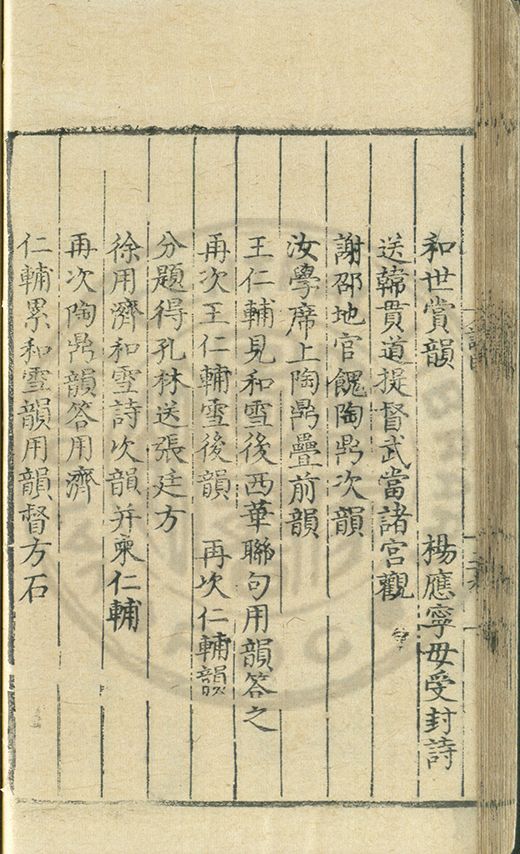 和世賞韻　楊應寧母受封詩
送韓貫道提督武當諸宮觀
謝邵地官餽陶鼎次韻
汝學席上陶鼎疊前韻
王仁輔見和雪後西華聯句用韻答之
再次王仁輔雪後韻　再次仁輔韻
分題得孔林送張廷方
徐用濟和雪詩次韻并柬仁輔
再次陶鼎韻答用濟
仁輔累和雪韻用韻督方石